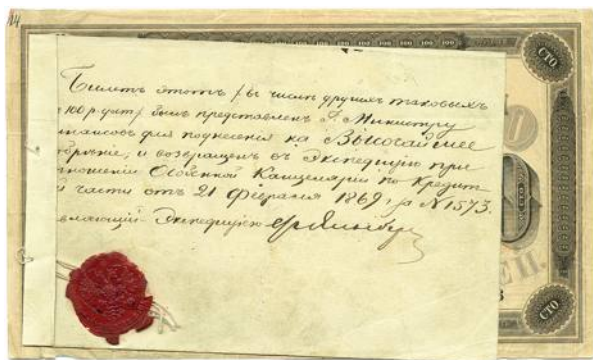 Билетъ этотъ /въ числѣ другихъ таковыхъ
100 р. дот/ былъ представленъ Г. Министру
нансовъ для поднесенія на Высочайшее
обреніе, и возвращенъ въ Экспедицію при
ношеніи Особенной Канцеляріи по Кредит
й части отъ 21 Февраля 1869 г. за N 1573.
вляющій Экспедиціею
СТО
СТО
100 100 100 100